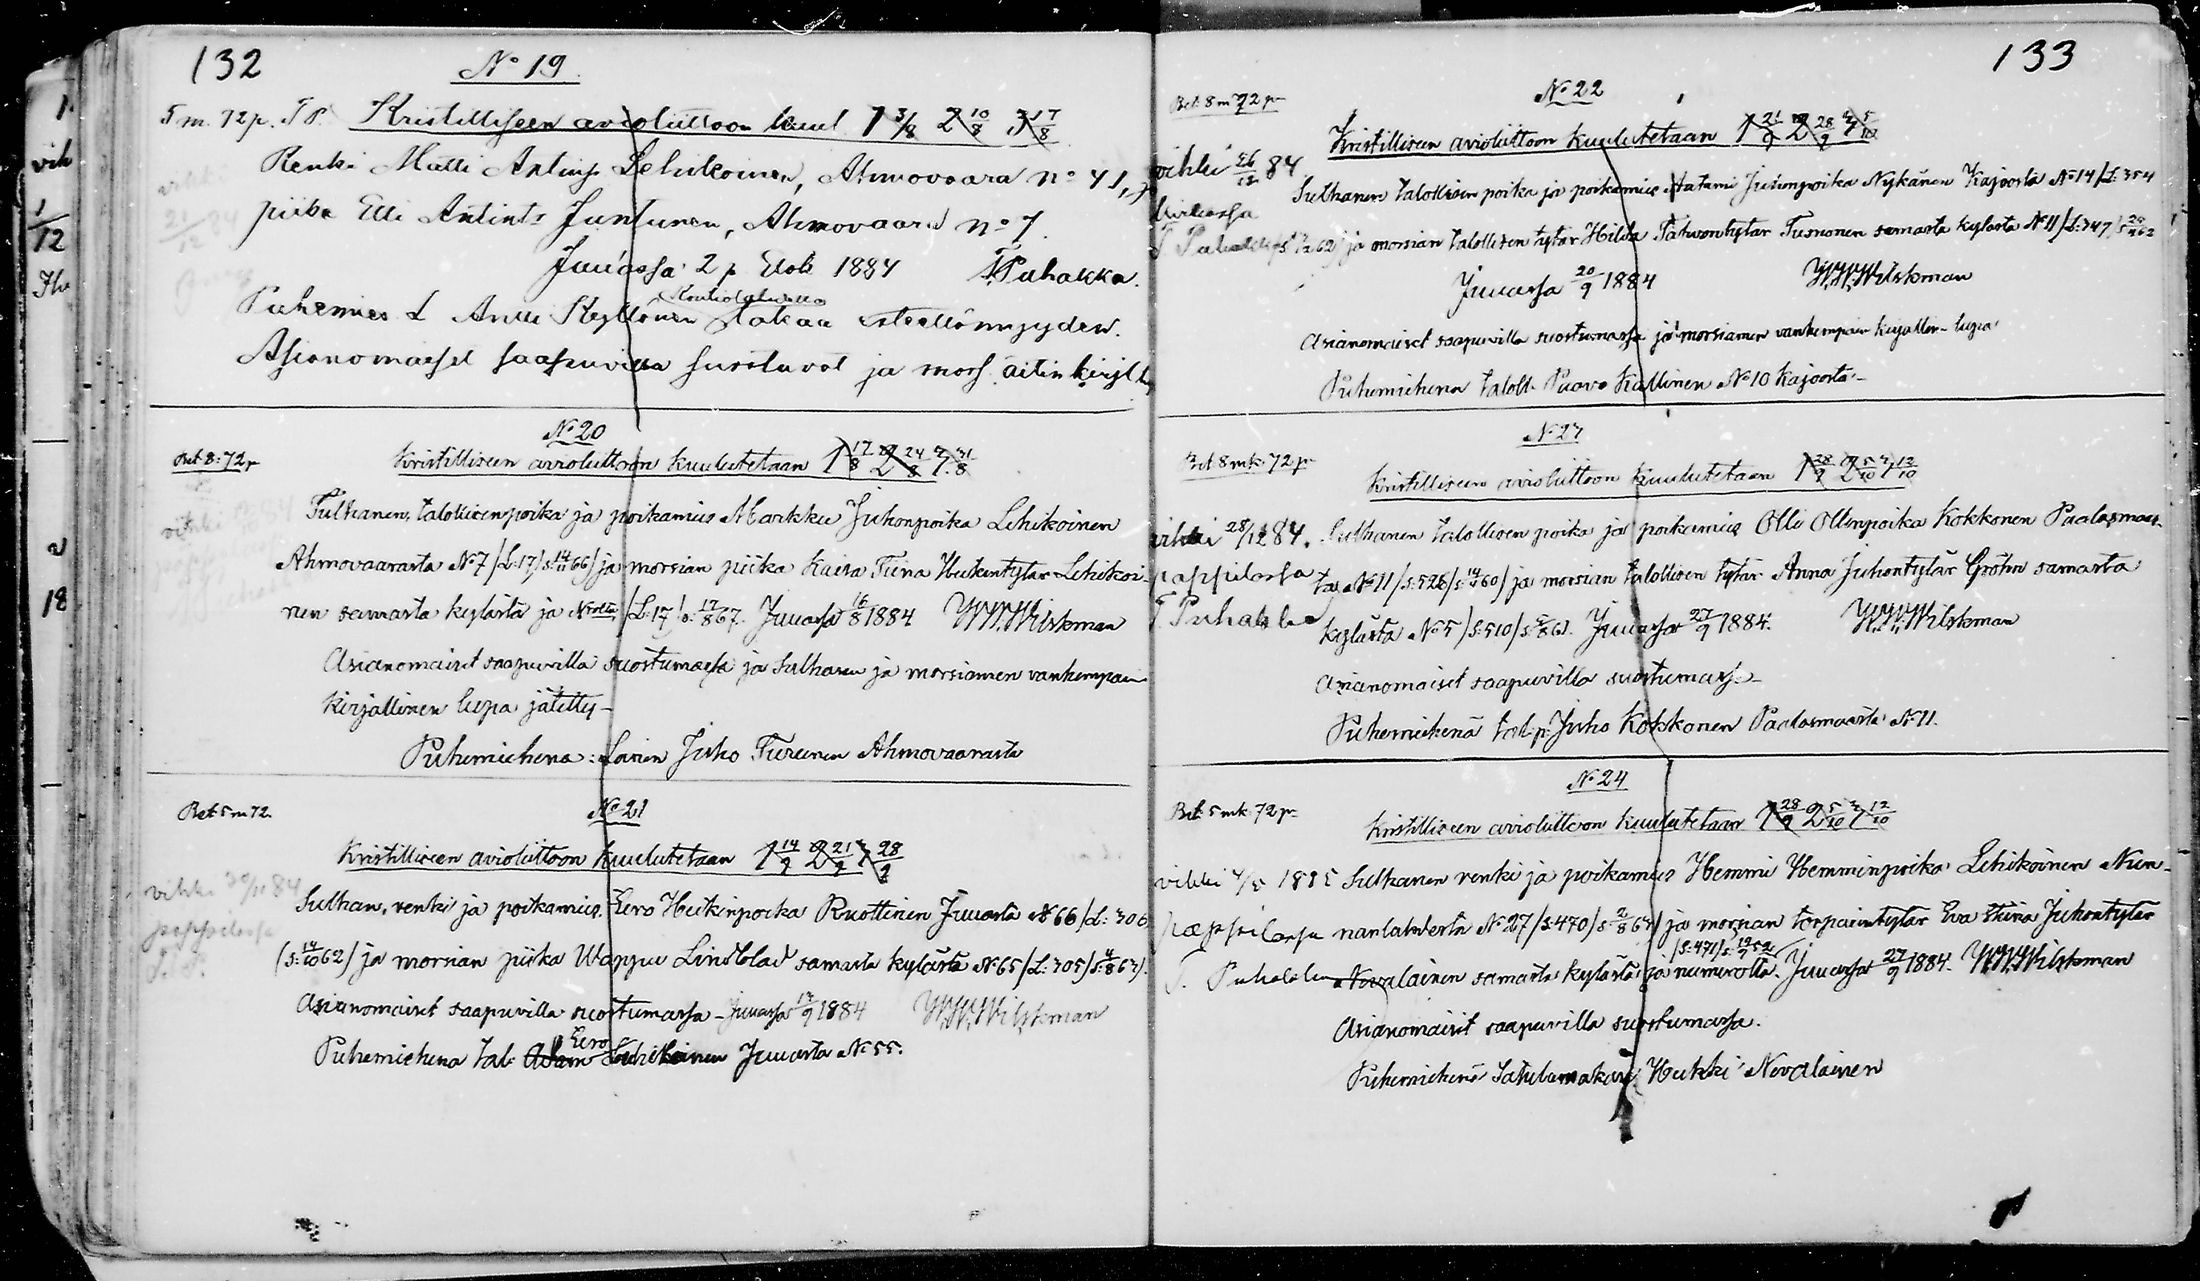 132
No 19.
5 m. 72 p. T P. Kristilliseen avioliittoon kuul. 1 3/8 2 10/8 3 17/8
Renki Matti Antinp Lehikoinen, Ahmovaara no 41, ja
piika Elli Antints Juntunen, Ahmovaara no 7.
Juuassa 2 p. Elok 1884 T Puhakka.
Kontiolahdella
Puhemies L Antti Kyllönen takaa esteettömyyden.
Asianomaiset saapuvilla suostuvat ja mors. äitin kirjl.
No 20
Bet 8:72 p
Kristilliseen avioliittoon kuulutetaan 1 17/8 2 24/8 3 31/8
Sulhanen, talollisen poika ja poikamies Markku Juhonpoika Lehikoinen
Ahmovaarasta No 7 /L:17/ s: 14/11 66/ ja morsian piika Kaisa Tiina Heikintytär Lehikoi-
nen samasta kylästä ja No:olta /L:17/ s: 17/8 67. Juuassa 16/8 1884 W.W.Wilskman
Asianomaiset saapuvilla suostumassa ja sulhasen ja morsiamen vanhempain
kirjallinen lupa jätetty-
Puhemiehenä: Loinen Juho Turunen Ahmovaarasta
Bet 5 m 72.
No 21
Kristilliseen avioliittoon kuulutetaan 1 14/9 2 21/9 3 28/9
vihki 30/11 84
pappilassa
T. P.
Sulhan, renki ja poikamies, Eero Heikinpoika Ruottinen Juuasta No 66 /L: 306
(s: 14/10 62) ja morsian piika Wappu Lindblad samasta kylästä No 65 /L: 305/ s: 4/8 63/.
Asianomaiset saapuvilla suostumassa - Juuassa 13/9 1884 W.W.Wilskman
Eero
Puhemiehenä tal: Adam Lehikoinen Juuasta No 55.
133
No 22
Bet: 8 m 72 p
Kristilliseen avioliittoon kuulutetaan 1 21/9 2 28/9 3 5/10
vihki 26/12 84
kirkossa
T Puhakka
Sulhanen talollisen poika ja poikamies Aatami Juhonpoika Nykänen Kajoosta No 14 /L: 354
ja morsian talollisen tytär Hilda Tahvontytär Tuononen samasta kylästä No 11 /L:347/
Juuassa 20/9 1884 W.W.Wilskman
Asianomaiset saapuvilla suostumassa ja morsiamen vanhempain kirjallin- lupa
Puhemiehenä talol- Paavo Kallinen No 10 Kajoosta-
No 23
Bet 8 mk 72 p
Kristilliseen avioliittoon kuulutetaan 1 28/9 2 5/10 3 12/10
vihki 28/12 84.
pappilassa
T. Puhakka
Sulhanen talollisen poika ja poikamies Olli Ollinpoika Kokkonen Paalasmaas-
ta No 11 /s:526/ ja morsian talollisen tytär Anna Juhontytär Gröhn samasta
kylästä No 5 /s:510/ Juuassa 27/9 1884. W.W.Wilskman
Asianomaiset saapuvilla suostumass-
Puhemiehenä tal:p: Juho Kokkonen Paalasmaasta No 11.
No 24
Bet: 5 mk 72 p
Kristilliseen avioliittoon kuulutetaan 1 28/9 2 5/10 3 12/10
vihki 1885
pappilassa
T. Puhakka
Sulhanen renki ja poikamies Hemmi Hemminpoika Lehikoinen Nun-
nanlahdesta No 27 /s:470/ s: 2/8 63/ ja morsian torpparintytär Eva Stina Juhontytär
/s:471/
Nevalainen samasta kylästä ja numerolta. Juuassa 27/9 1884. W.W.Wilskman
Asianomaiset saapuvilla suostumassa.
Puhemiehenä Satulamakari Heikki Nevalainen